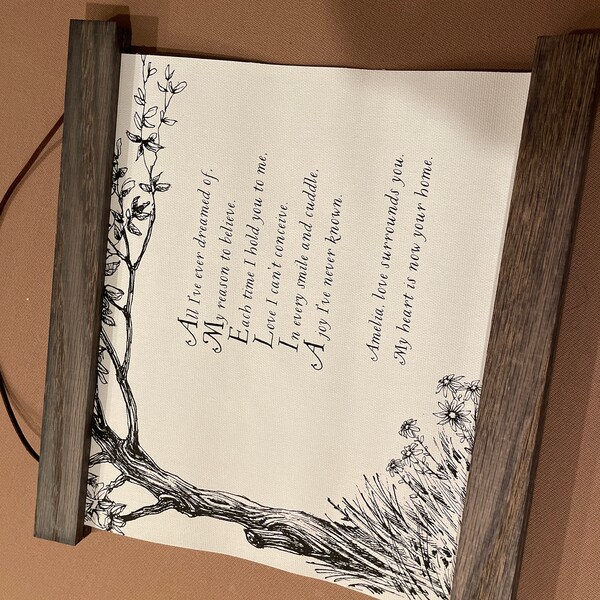 All I've ever dreamed of.
My reason to believe.
Each time I hold you to me.
Love I can't conceive.
In every smile and cuddle,
A joy I've never known.
Amelia, love surrounds you.
My heart is now your home.